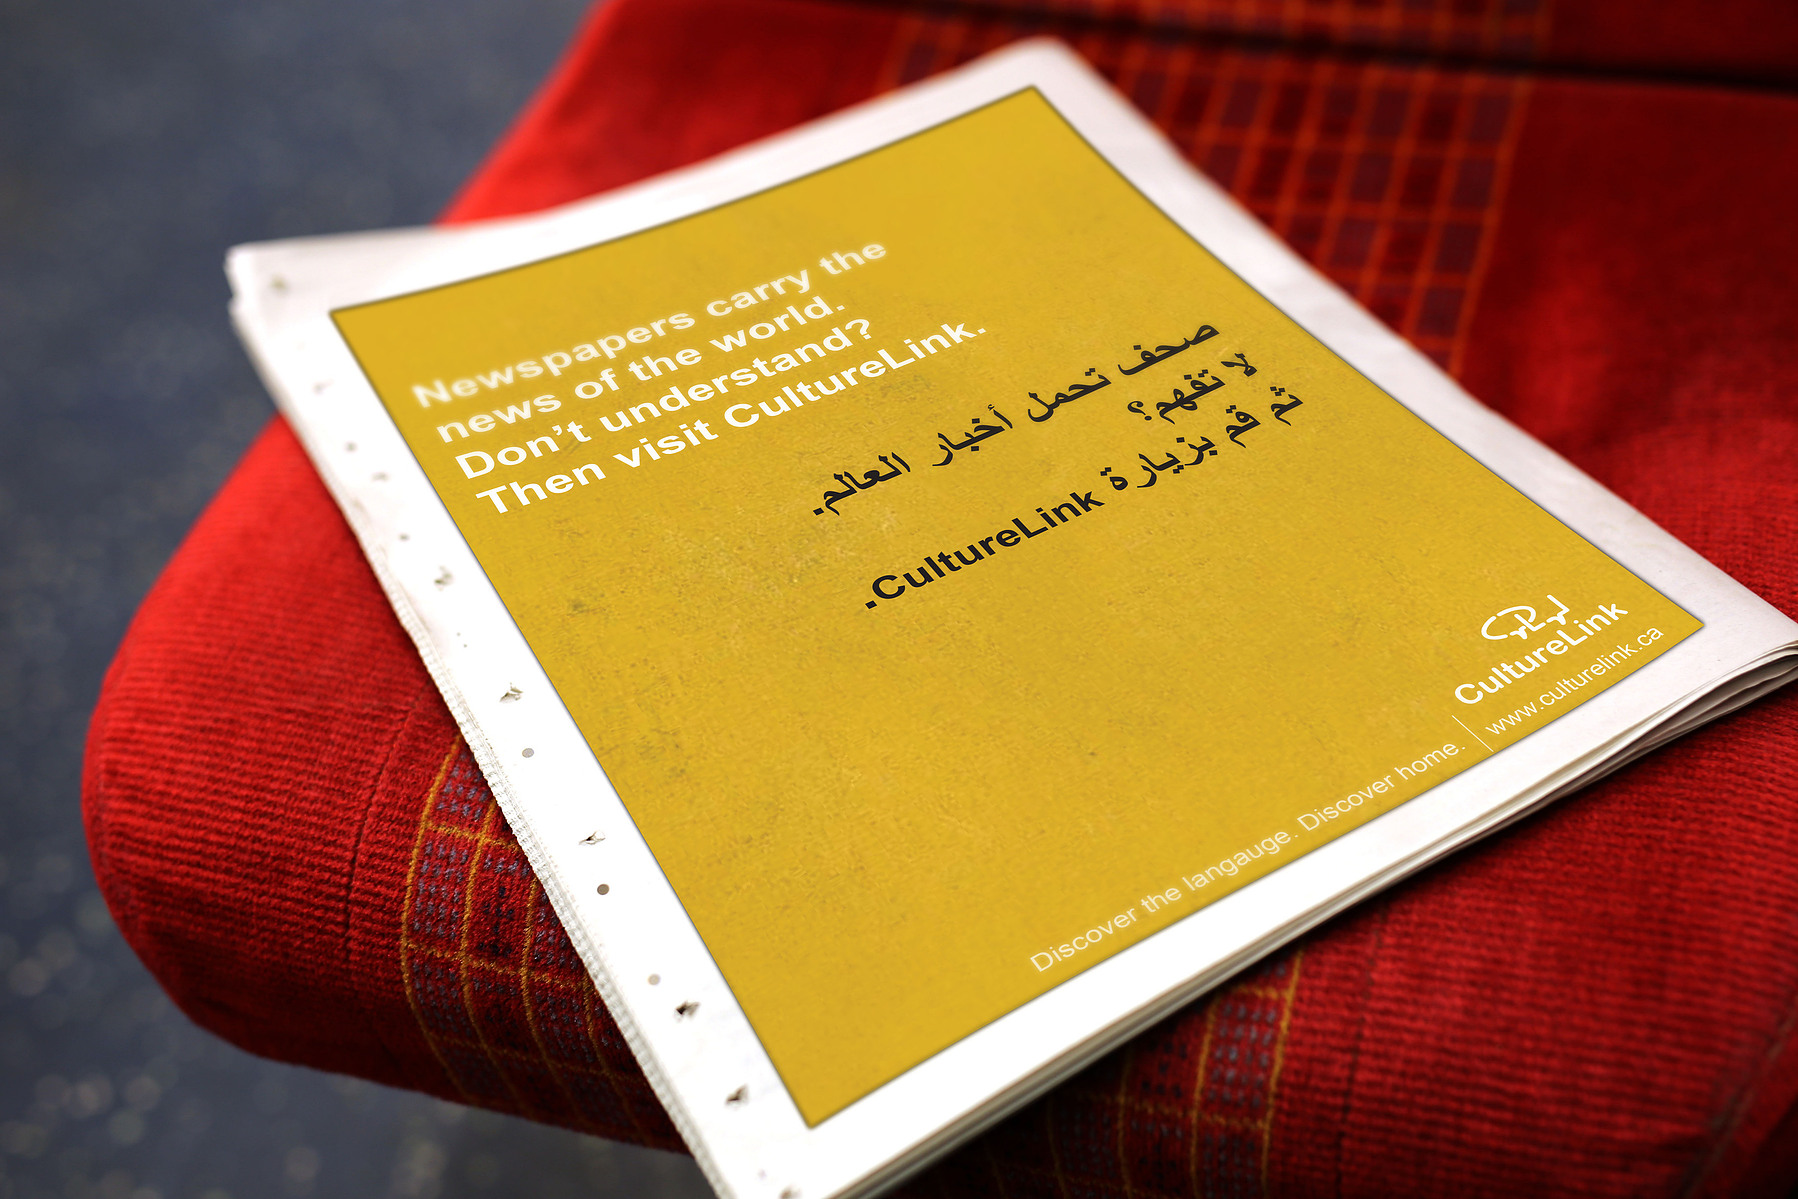 Newspapers carry the
news of the world.
Don't understand?
Then visit CultureLink.
صحف تحمل أخبار العالم.
لا تفهم؟
ثم قم بزيارة
CultureLink.
CultureLink
Discover the langauge. Discover home. | www.culturelink.ca